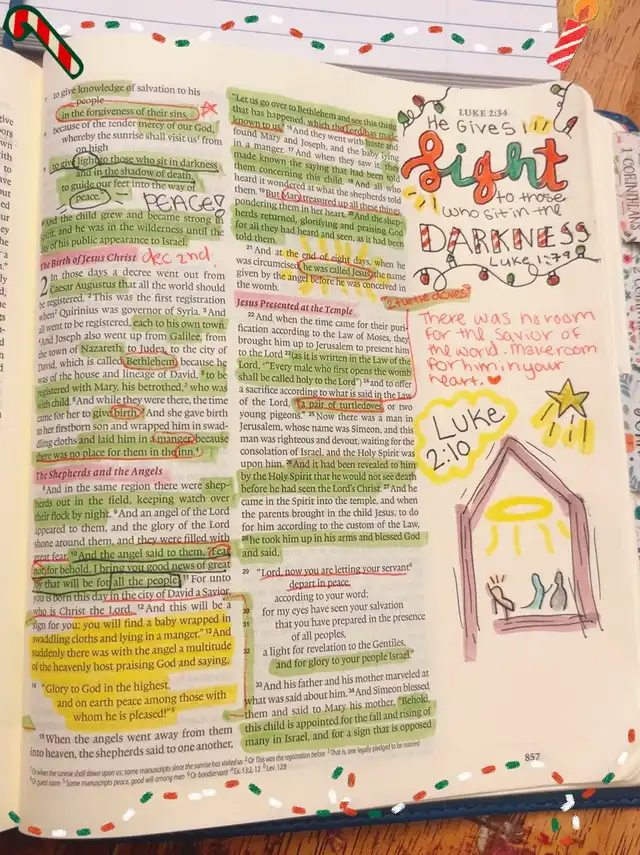 to give knowledge of salvation to his
people
in the forgiveness of their sins,
because of the tender mercy of our God,
whereby the sunrise shall visit us from
on high
to give light to those who sit in darkness
and in the shadow of death,
to guide our feet into the way of
peace."
PEACE!
And the child grew and became strong in
spirit, and he was in the wilderness until the
day of his public appearance to Israel.
The Birth of Jesus Christ
dec 2nd.
2 In those days a decree went out from
Caesar Augustus that all the world should
be registered. 2 This was the first registration
when Quirinius was governor of Syria. 3 And
all went to be registered, each to his own town.
And Joseph also went up from Galilee, from
the town of Nazareth, to Judea, to the city of
David, which is called Bethlehem, because he
was of the house and lineage of David, 5 to be
registered with Mary, his betrothed, who was
with child. 6 And while they were there, the time
came for her to give birth. 7 And she gave birth
to her firstborn son and wrapped him in swad-
dling cloths and laid him in a manger, because
there was no place for them in the inn.
The Shepherds and the Angels
8 And in the same region there were shep-
herds out in the field, keeping watch over
their flock by night. 9 And an angel of the Lord
appeared to them, and the glory of the Lord
shone around them, and they were filled with
great fear. 10 And the angel said to them, "Fear
not, for behold, I bring you good news of great
joy that will be for all the people. 11 For unto
you is born this day in the city of David a Savior,
who is Christ the Lord. 12 And this will be a
sign for you: you will find a baby wrapped in
swaddling cloths and lying in a manger." 13 And
suddenly there was with the angel a multitude
of the heavenly host praising God and saying,
14 "Glory to God in the highest,
and on earth peace among those with
whom he is pleased!"
15 When the angels went away from them
into heaven, the shepherds said to one another,
"Let us go over to Bethlehem and see this thing
that has happened, which the Lord has made
known to us." 16 And they went with haste and
found Mary and Joseph, and the baby lying
in a manger. 17 And when they saw it, they
made known the saying that had been told
them concerning this child. 18 And all who
heard it wondered at what the shepherds told
them. 19 But Mary treasured up all these things,
pondering them in her heart. 20 And the shep-
herds returned, glorifying and praising God
for all they had heard and seen, as it had been
told them.
21 And at the end of eight days, when he
was circumcised, he was called Jesus, the name
given by the angel before he was conceived in
the womb.
Jesus Presented at the Temple
22 And when the time came for their puri-
fication according to the Law of Moses, they
brought him up to Jerusalem to present him
to the Lord 23 (as it is written in the Law of the
Lord, "Every male who first opens the womb
shall be called holy to the Lord") 24 and to offer
a sacrifice according to what is said in the Law
of the Lord, "a pair of turtledoves, or two
young pigeons." 25 Now there was a man in
Jerusalem, whose name was Simeon, and this
man was righteous and devout, waiting for the
consolation of Israel, and the Holy Spirit was
upon him. 26 And it had been revealed to him
by the Holy Spirit that he would not see death
before he had seen the Lord's Christ. 27 And he
came in the Spirit into the temple, and when
the parents brought in the child Jesus, to do
for him according to the custom of the Law,
28 he took him up in his arms and blessed God
and said,
29 "Lord, now you are letting your servant
depart in peace,
according to your word;
30 for my eyes have seen your salvation
31 that you have prepared in the presence
of all peoples,
32 a light for revelation to the Gentiles,
and for glory to your people Israel."
33 And his father and his mother marveled at
what was said about him. 34 And Simeon blessed
them and said to Mary his mother, "Behold,
this child is appointed for the fall and rising of
many in Israel, and for a sign that is opposed
LUKE 2:34
He Gives
Light
to those
who sit in the
DARKNESS
Luke 1:79
"2 turtle doves"
There was no room
for the Savior of
the world. Make room
for him in your
heart.
Luke
2:10
857
I CORINTHIANS